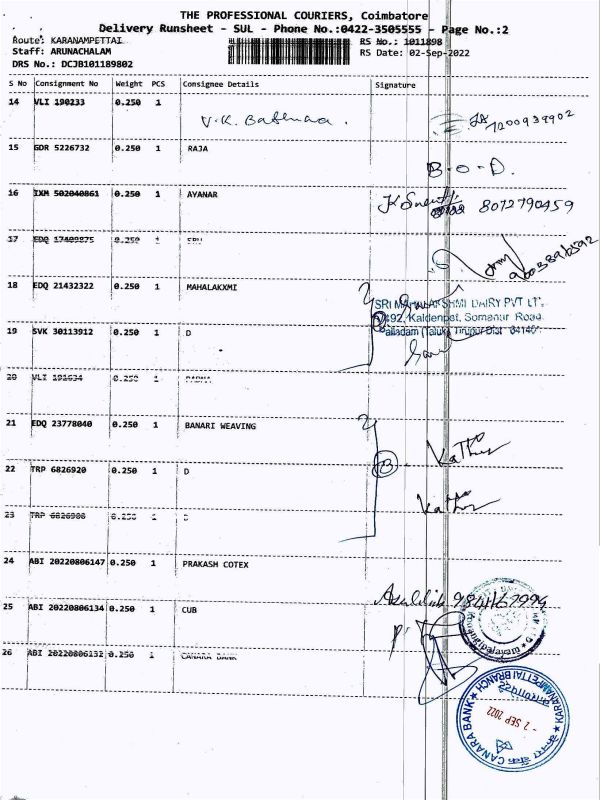 THE PROFESSIONAL COURIERS, Coimbatore
Delivery Runsheet - SUL - Phone No.:0422-3505555 - Page No.:2
Route: KARANAMPETTAI RS No.: 1011898
Staff: ARUNACHALAM RS Date: 02-Sep-2022
DRS No.: DCJB101189802
S No Consignment No Weight PCS Consignee Details Signature
14 VLI 190233 0.250 1
7200939902
15 GDR 5226732 0.250 1 RAJA
B-O-D.
16 IXM 502040861 0.250 1 AYANAR
8072790459
17 EDQ 17409875 0.250 1
18 EDQ 21432322 0.250 1 MAHALAKXMI
SRI MAHALAKSHMI DAIRY PVT LT
Somanur Road
19 SVK 30113912 0.250 1 D
Palladam (Taluk) Tirupur Dist
20 VLI 191634 0.250
21 EDQ 23778040 0.250 1 BANARI WEAVING
22 TRP 6826920 0.250 1 D
B
23 TRP 6826908 0.250 D
24 ABI 20220806147 0.250 1 PRAKASH COTEX
25 ABI 20220806134 0.250 1 CUB
26 ABI 20220806132 0.250 1 CANARA BANK
CANARA BANK KARANAMPETTAI BRANCH
- 2 SEP 2022